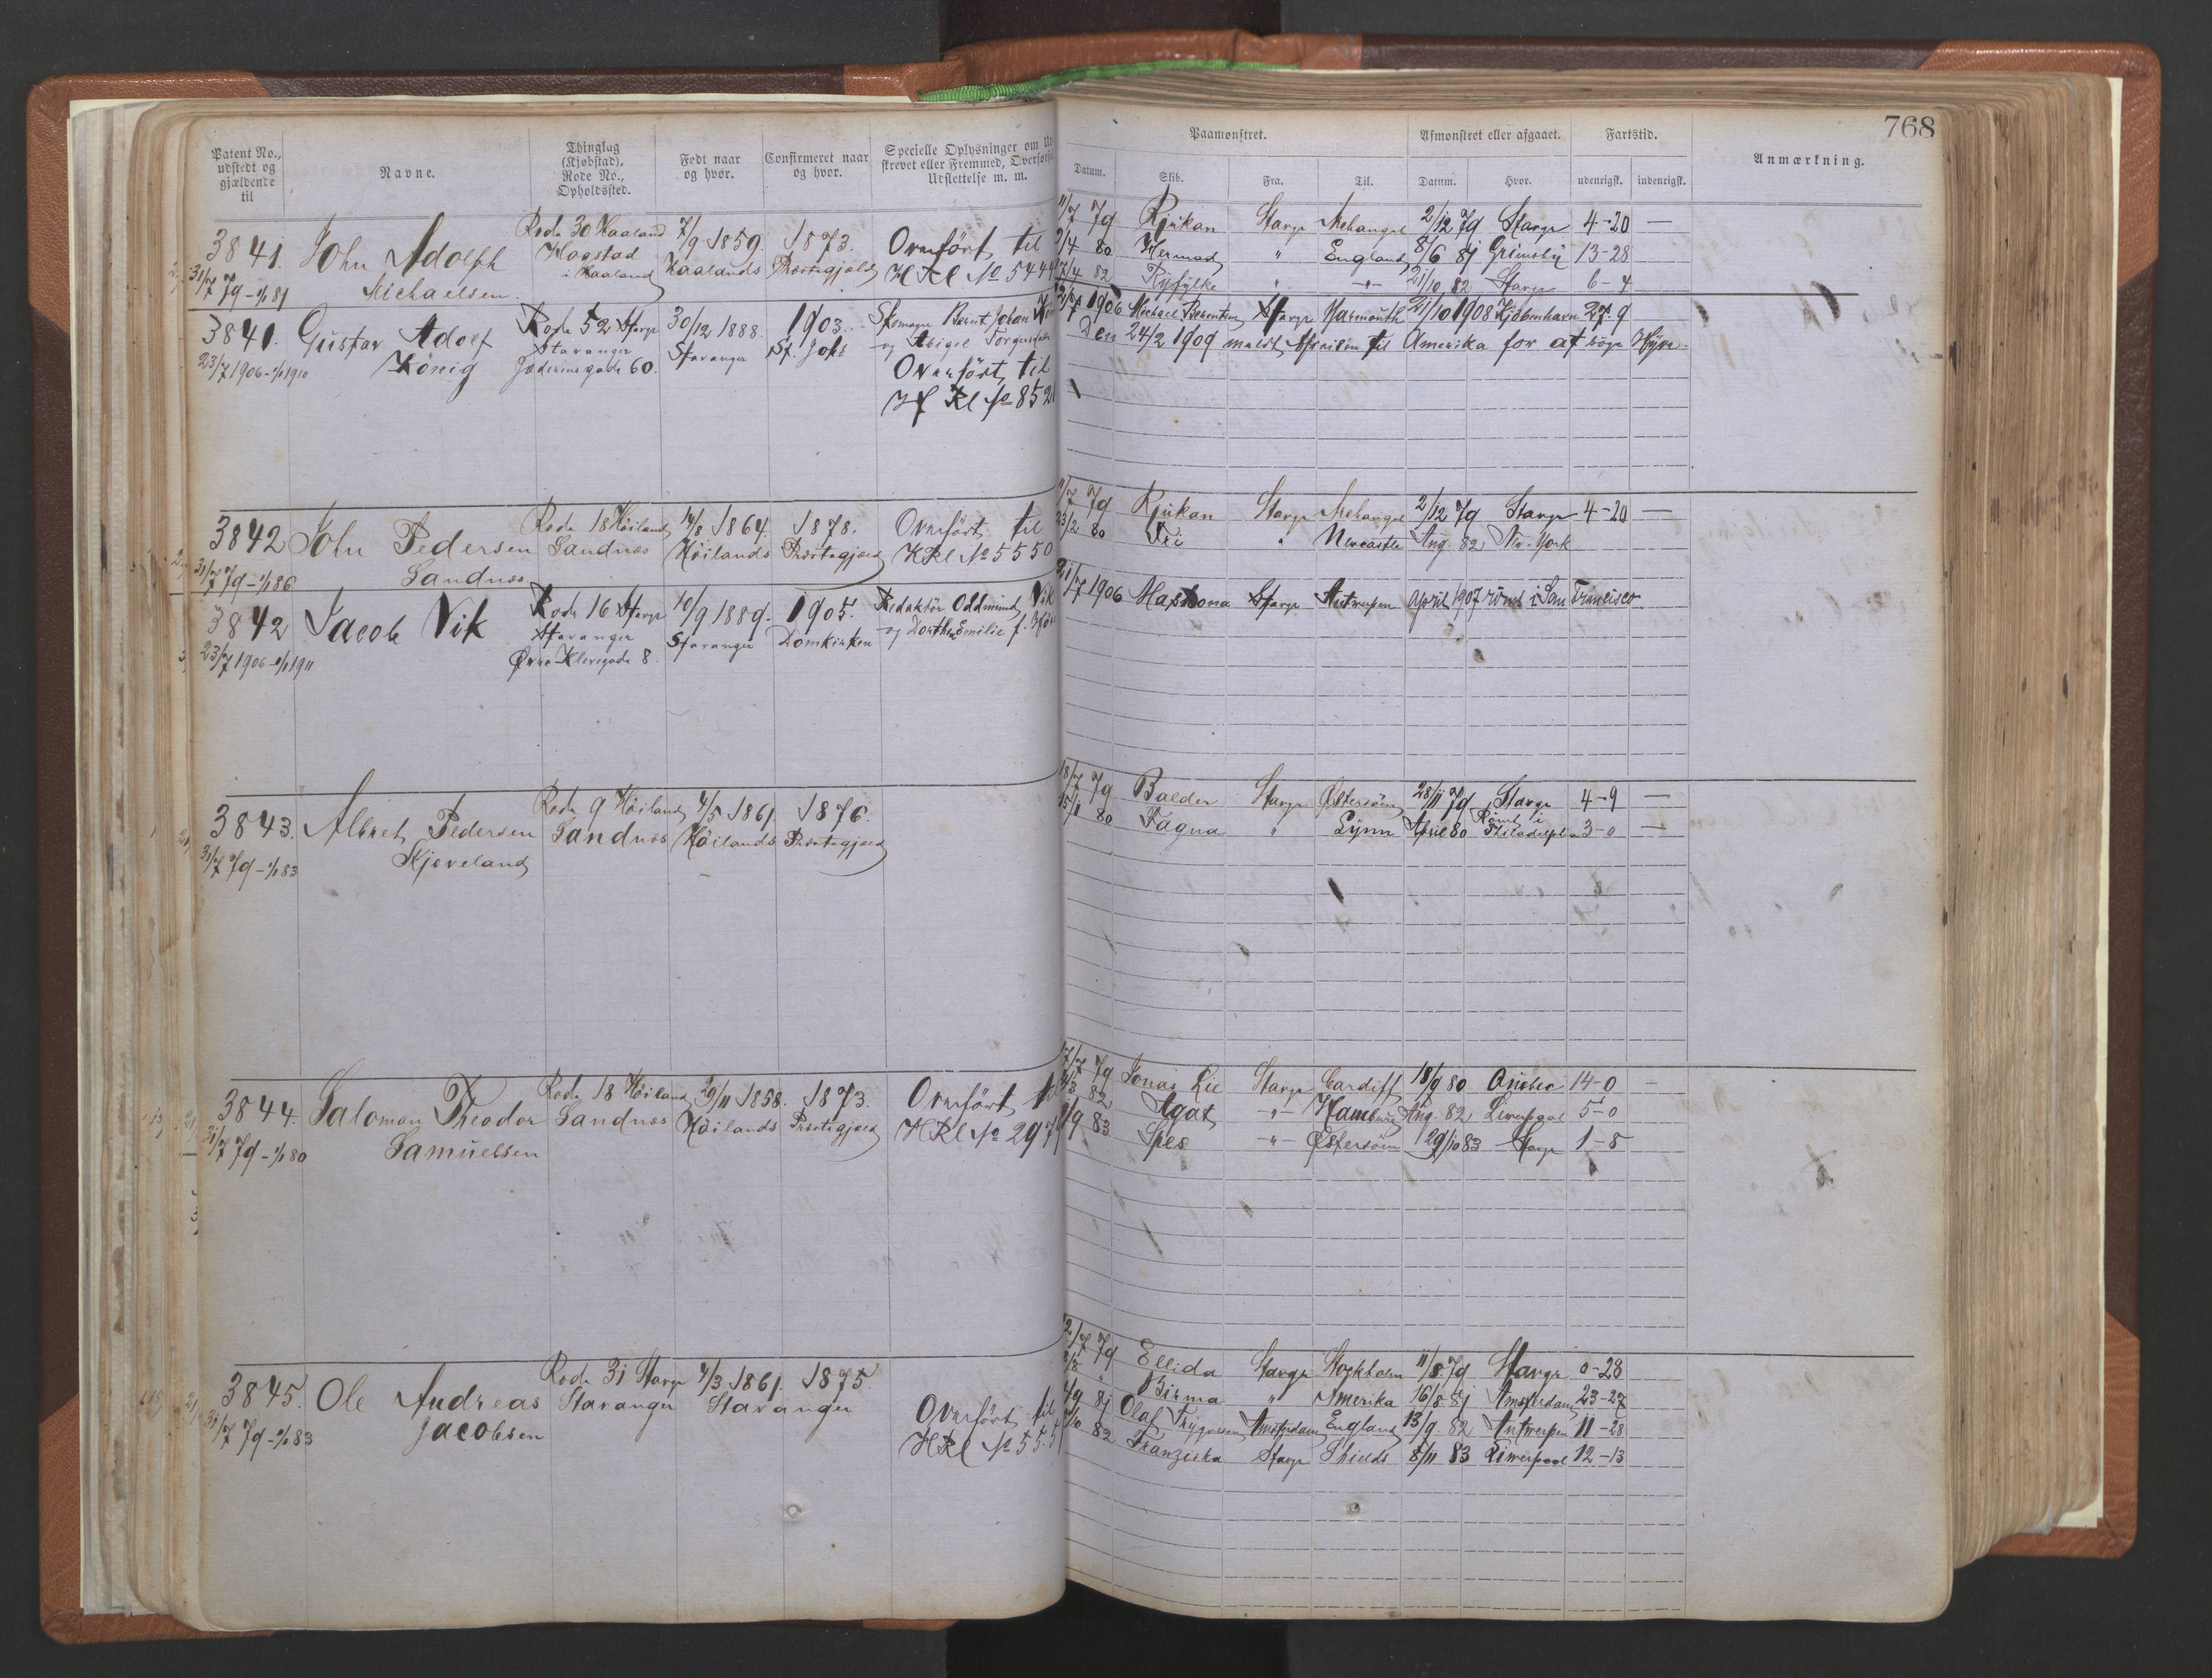 768
Patent No., udstedt og gjældende til
Navne.
Thinglag (Kjøbstad), Rode No., Opholdssted.
Født naar og hvor.
Confirmeret naar og hvor.
Specielle Oplysninger om
skrevet eller Fremmed, Overførsel
Udslettelse m. m.
Paamønstret.
Afmønstret eller afgaaet.
Fartstid.
Anmærkning.
Datum. Skib. Fra. Til. Datum. Hvor. udenrigsk. indenrigsk.
3841. John Adolph Michaelsen
31/7 79 - 1/1 81
Rode 30 Haaland
Hogstad
i Haaland
7/9 1859. Haalands Præstegjæld
1873.
Overført til
HRl No 544
11/7 79 Rjukan Stavgr Archangel 2/12 79 Stavgr 4-20 —
2/4 80 Hermod " England 8/6 81 Grimsby 13-28
17/4 82 Ryfylke " -"- 21/10 82 Stavgr 6-4
3841. Gustav Adolf König
23/7 1906 - 1/1 1910
Rode 52 Stavgr
Stavanger
Jæderensgade 60.
30/12 1888. Stavanger
1903. St. Joh.
Skomager Bernt Johan
og Abigel Torgersdatter
Overført til
Hf Rl No 852
1906 Michael Berentsen Stavgr Yarmouth 21/10 1908 Kjøbenhavn 27-9
Den 24/2 1909 meldt Afreisen til Amerika for at søge Hyre.
3842 John Pedersen Sandnæs
31/7 79 - 1/1 86
Rode 18 Høiland
Sandnæs
14/8 1864. Høilands Præstegjæld
1878.
Overført til
HRl No 5550
11/7 79 Rjukan Stavgr Archangel 2/12 79 Stavgr 4-20 —
23/2 80 " Newcastle Aug. 82 New-York
3842 Jacob Vik
23/7 1906 - 1/1 1911
Rode 16 Stavgr
Stavanger
Øvre Klevegade 8.
10/9 1889. Stavanger
1905. Domkirken
Redaktør Oddmund Vik
og Dorthea Emilie f.
21/7 1906 Stavgr Antwerpen April 1907 rømt i San Francisco
3843. Albret Pedersen Kjoveland
31/7 79 - 1/1 83
Rode 9 Høiland
Sandnæs
4/5 1861. Høilands Præstegjæld
1876.
18/7 79 Balder Stavgr Østersøen 28/11 79 Stavgr 4-9 —
15/1 80 Fagna " Lynn April 80 Rømt i Philadelphia 3-0 —
3844. Saloman Theodor Samuelsen
31/7 79 - 1/1 80
Rode 18 Høiland
Sandnæs
29/11 1858. Høilands Præstegjæld
1873.
Overført til
HRl No 297
17/7 79 Jonas Lie Stavgr Cardiff 18/9 80 Quebec 14-0 —
82 Agat -"- Hamburg Aug. 82 Liverpool 5-0
/9 83 Spes -"- Østersøen 29/10 83 Stavgr 1-8
3845. Ole Andreas Jacobsen
31/7 79 - 1/1 83
Rode 31 Stavgr
Stavanger
4/3 1861. Stavanger
1875.
Overført til
HRl No 555
12/7 79 Ellida Stavgr Stockholm 11/8 79 Stavgr 0-28
Birma " Amerika 16/8 81 Amsterdam 23-27
/9 81 Olaf Trygvesen Amsterdam England 13/9 82 Antwerpen 11-28
/10 82 Franziska Stavgr Shields 8/11 83 Liverpool 12-13